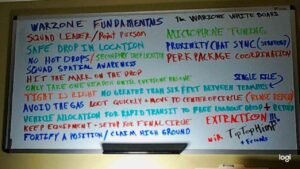 WARZONE FUNDAMENTALS
THE WARZONE WHITE BOARD
SQUAD LEADER/Point Person
MICROPHONE TUNING
SAFE DROP IN LOCATION
PROXIMITY CHAT SYNC
NO HOT DROPS/SECONDARY
PERK PACKAGE COORDINATION
SQUAD SPATIAL AWARENESS
HIT THE MARK ON THE DROP
ONLY TAKE ONE
UNTIL EVERYONE
SINGLE FILE
TIGHT IS RIGHT NO GREATER THAN SIX FEET BETWEEN TEAMMATES
AVOID THE GAS LOOT QUICKLY + MOVE TO CENTER OF CIRCLE (RINSE REPEAT)
VEHICLE ALLOCATION FOR RAPID TRANSIT TO
LOADOUT DROP + RETURN
KEEP EQUIPMENT - SETUP FOR FINAL CIRCLE
EXTRACTION!!!
FORTIFY A POSITION/CLAIM HIGH GROUND
+ Friends
logi